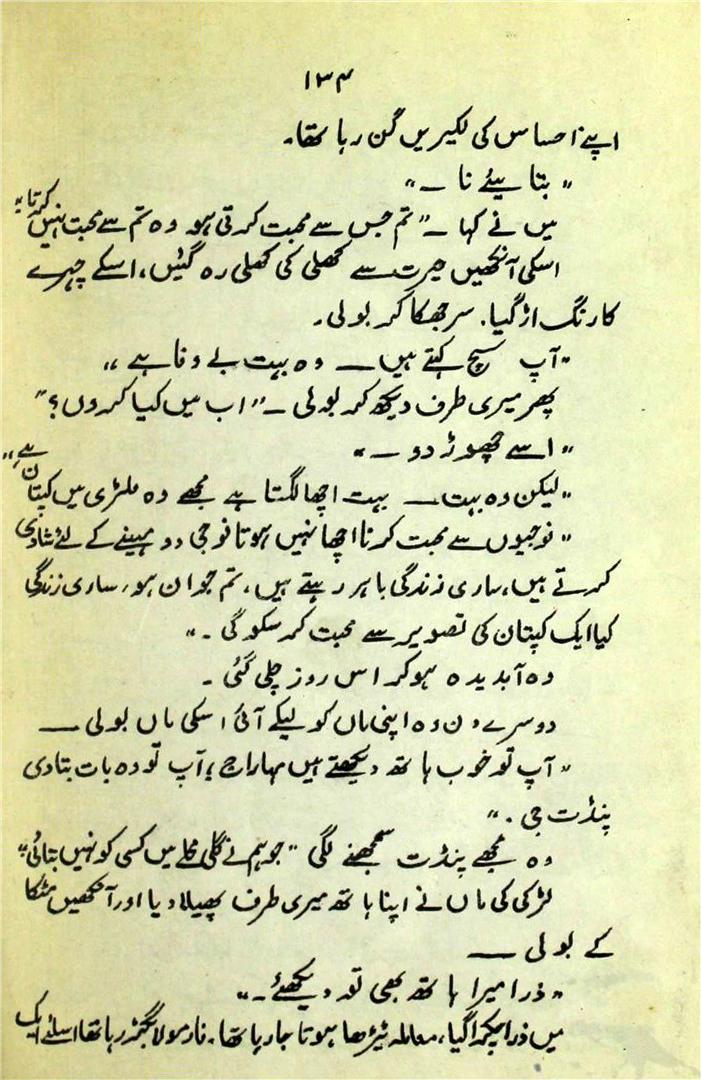 ۱۳۴
اپنے احساس کی لکیریں گن رہا تھا۔
" بتایئے نا ـــ "
میں نے کہا ـــ " تم جس سے محبت کرتی ہو وہ تم سے محبت نہیں کرتا "
اسکی آنکھیں حیرت سے کھلی کی کھلی رہ گئیں، اسکے چہرے
کا رنگ اڑ گیا۔ سر جھکا کر بولی۔
" آپ سچ کہتے ہیں ـــ وہ بہت بے وفا ہے "
پھر میری طرف دیکھ کر بولی ـــ " اب میں کیا کروں؟ "
" اسے چھوڑ دو ـــ "
" لیکن وہ بہت ـــ بہت اچھا لگتا ہے مجھے وہ ملٹری میں کپتان ہے "
" فوجیوں سے محبت کرنا اچھا نہیں ہوتا فوجی دو مہینے کے لئے شادی
کرتے ہیں، ساری زندگی باہر رہتے ہیں، تم جوان ہو، ساری زندگی
کیا ایک کپتان کی تصویر سے محبت کر سکو گی ۔ "
وہ آبدیدہ ہو کر اس روز چلی گئی ۔
دوسرے دن وہ اپنی ماں کو لیکے آئی اسکی ماں بولی ـــ
" آپ تو خوب ہاتھ دیکھتے ہیں مہاراج ! آپ تو وہ بات بتا دی
پنڈت جی ۔ "
وہ مجھے پنڈت سمجھنے لگی " جو ہم نے گلی محلے میں کسی کو نہیں بتائی "
لڑکی کی ماں نے اپنا ہاتھ میری طرف پھیلا دیا اور آنکھیں مٹکا
کے بولی ـــ
" ذرا میرا ہاتھ بھی تو دیکھئے ۔ "
میں ذرا چکرا گیا، معاملہ ٹیڑھا ہوتا جا رہا تھا۔ فارمولا بگڑ رہا تھا اسلئے ایک